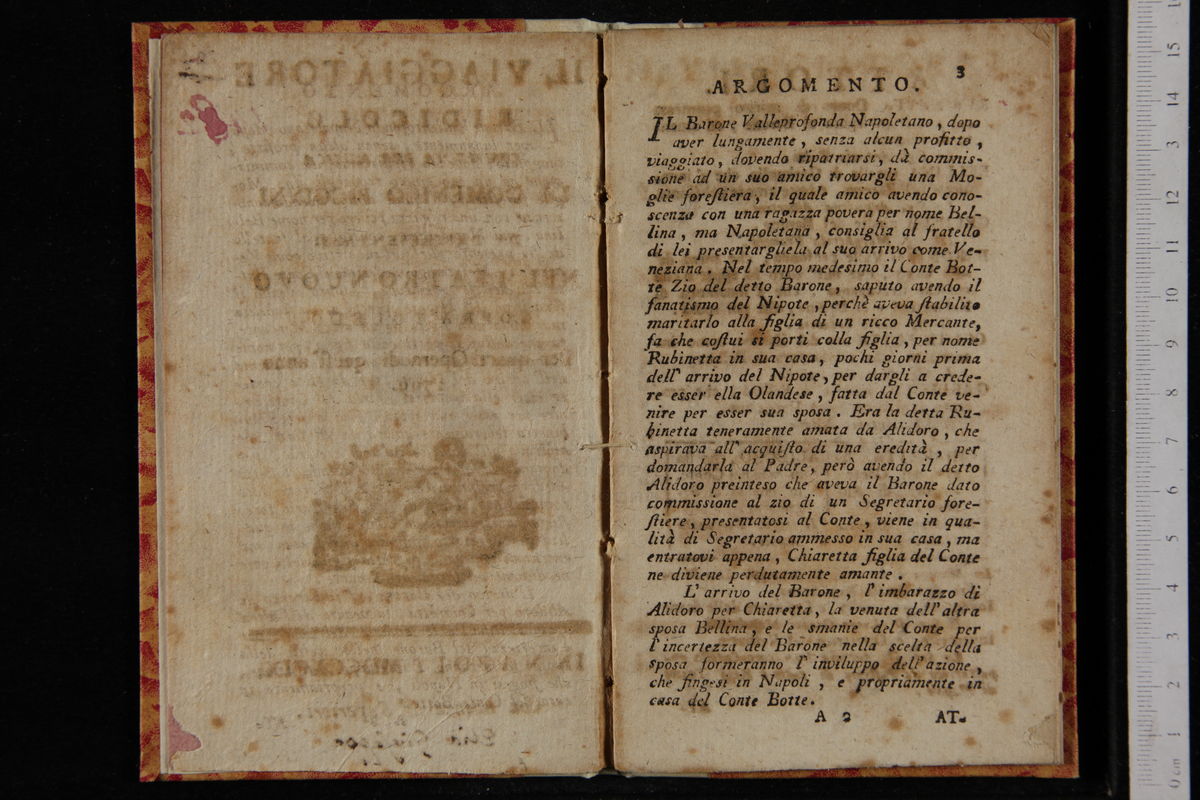 3
ARGOMENTO.
IL Barone Valleprofonda Napoletano, dopo
aver lungamente, senza alcun profitto,
viaggiato, dovendo ripatriarsi, dà commis-
sione ad un suo amico trovargli una Mo-
glie forestiera, il quale amico avendo cono-
scenza con una ragazza povera per nome Bel-
lina, ma Napoletana, consiglia al fratello
di lei presentargliela al suo arrivo come Ve-
neziana. Nel tempo medesimo il Conte Bot-
te Zio del detto Barone, saputo avendo il
fanatismo del Nipote, perchè aveva stabilito
maritarlo alla figlia di un ricco Mercante,
fa che costui si porti colla figlia, per nome
Rubinetta in sua casa, pochi giorni prima
dell' arrivo del Nipote, per dargli a crede-
re esser ella Olandese, fatta dal Conte ve-
nire per esser sua sposa. Era la detta Ru-
binetta teneramente amata da Alidoro, che
aspirava all' acquisto di una eredità, per
domandarla al Padre, però avendo il detto
Alidoro preinteso che aveva il Barone dato
commissione al zio di un Segretario fore-
stiere, presentatosi al Conte, viene in qua-
lità di Segretario ammesso in sua casa, ma
entratovi appena, Chiaretta figlia del Conte
ne diviene perdutamente amante.
L' arrivo del Barone, l' imbarazzo di
Alidoro per Chiaretta, la venuta dell' altra
sposa Bellina, e le smanie del Conte per
l' incertezza del Barone nella scelta della
sposa formeranno l' inviluppo dell' azione,
che fingesi in Napoli, e propriamente in
casa del Conte Botte.
A 2 AT-